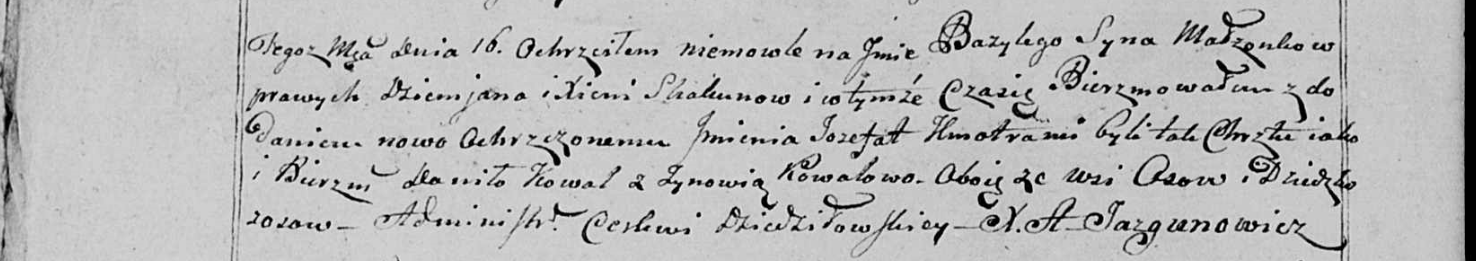 Tegoz Mca Dnia 16. Ochrzciłem niemowle na Jmie Bazylego Syna Małzonkow
prawych Dziemjana i Xieni Skakunow i w tymże Czasie Bierzmowałem z do
daniem nowo Ochrzczonemu Jmienia Jozefat Kmotrami byli tak Chrztu iako
i Bierzm Daniło Kowal z Zynowią Kowalowo. Oboie ze wsi Osow i Dziedzko
zosow – Administr. Cerkwi Dziedziłowskiey – X. A. Jazgunowicz